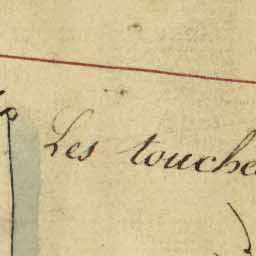 Les touche